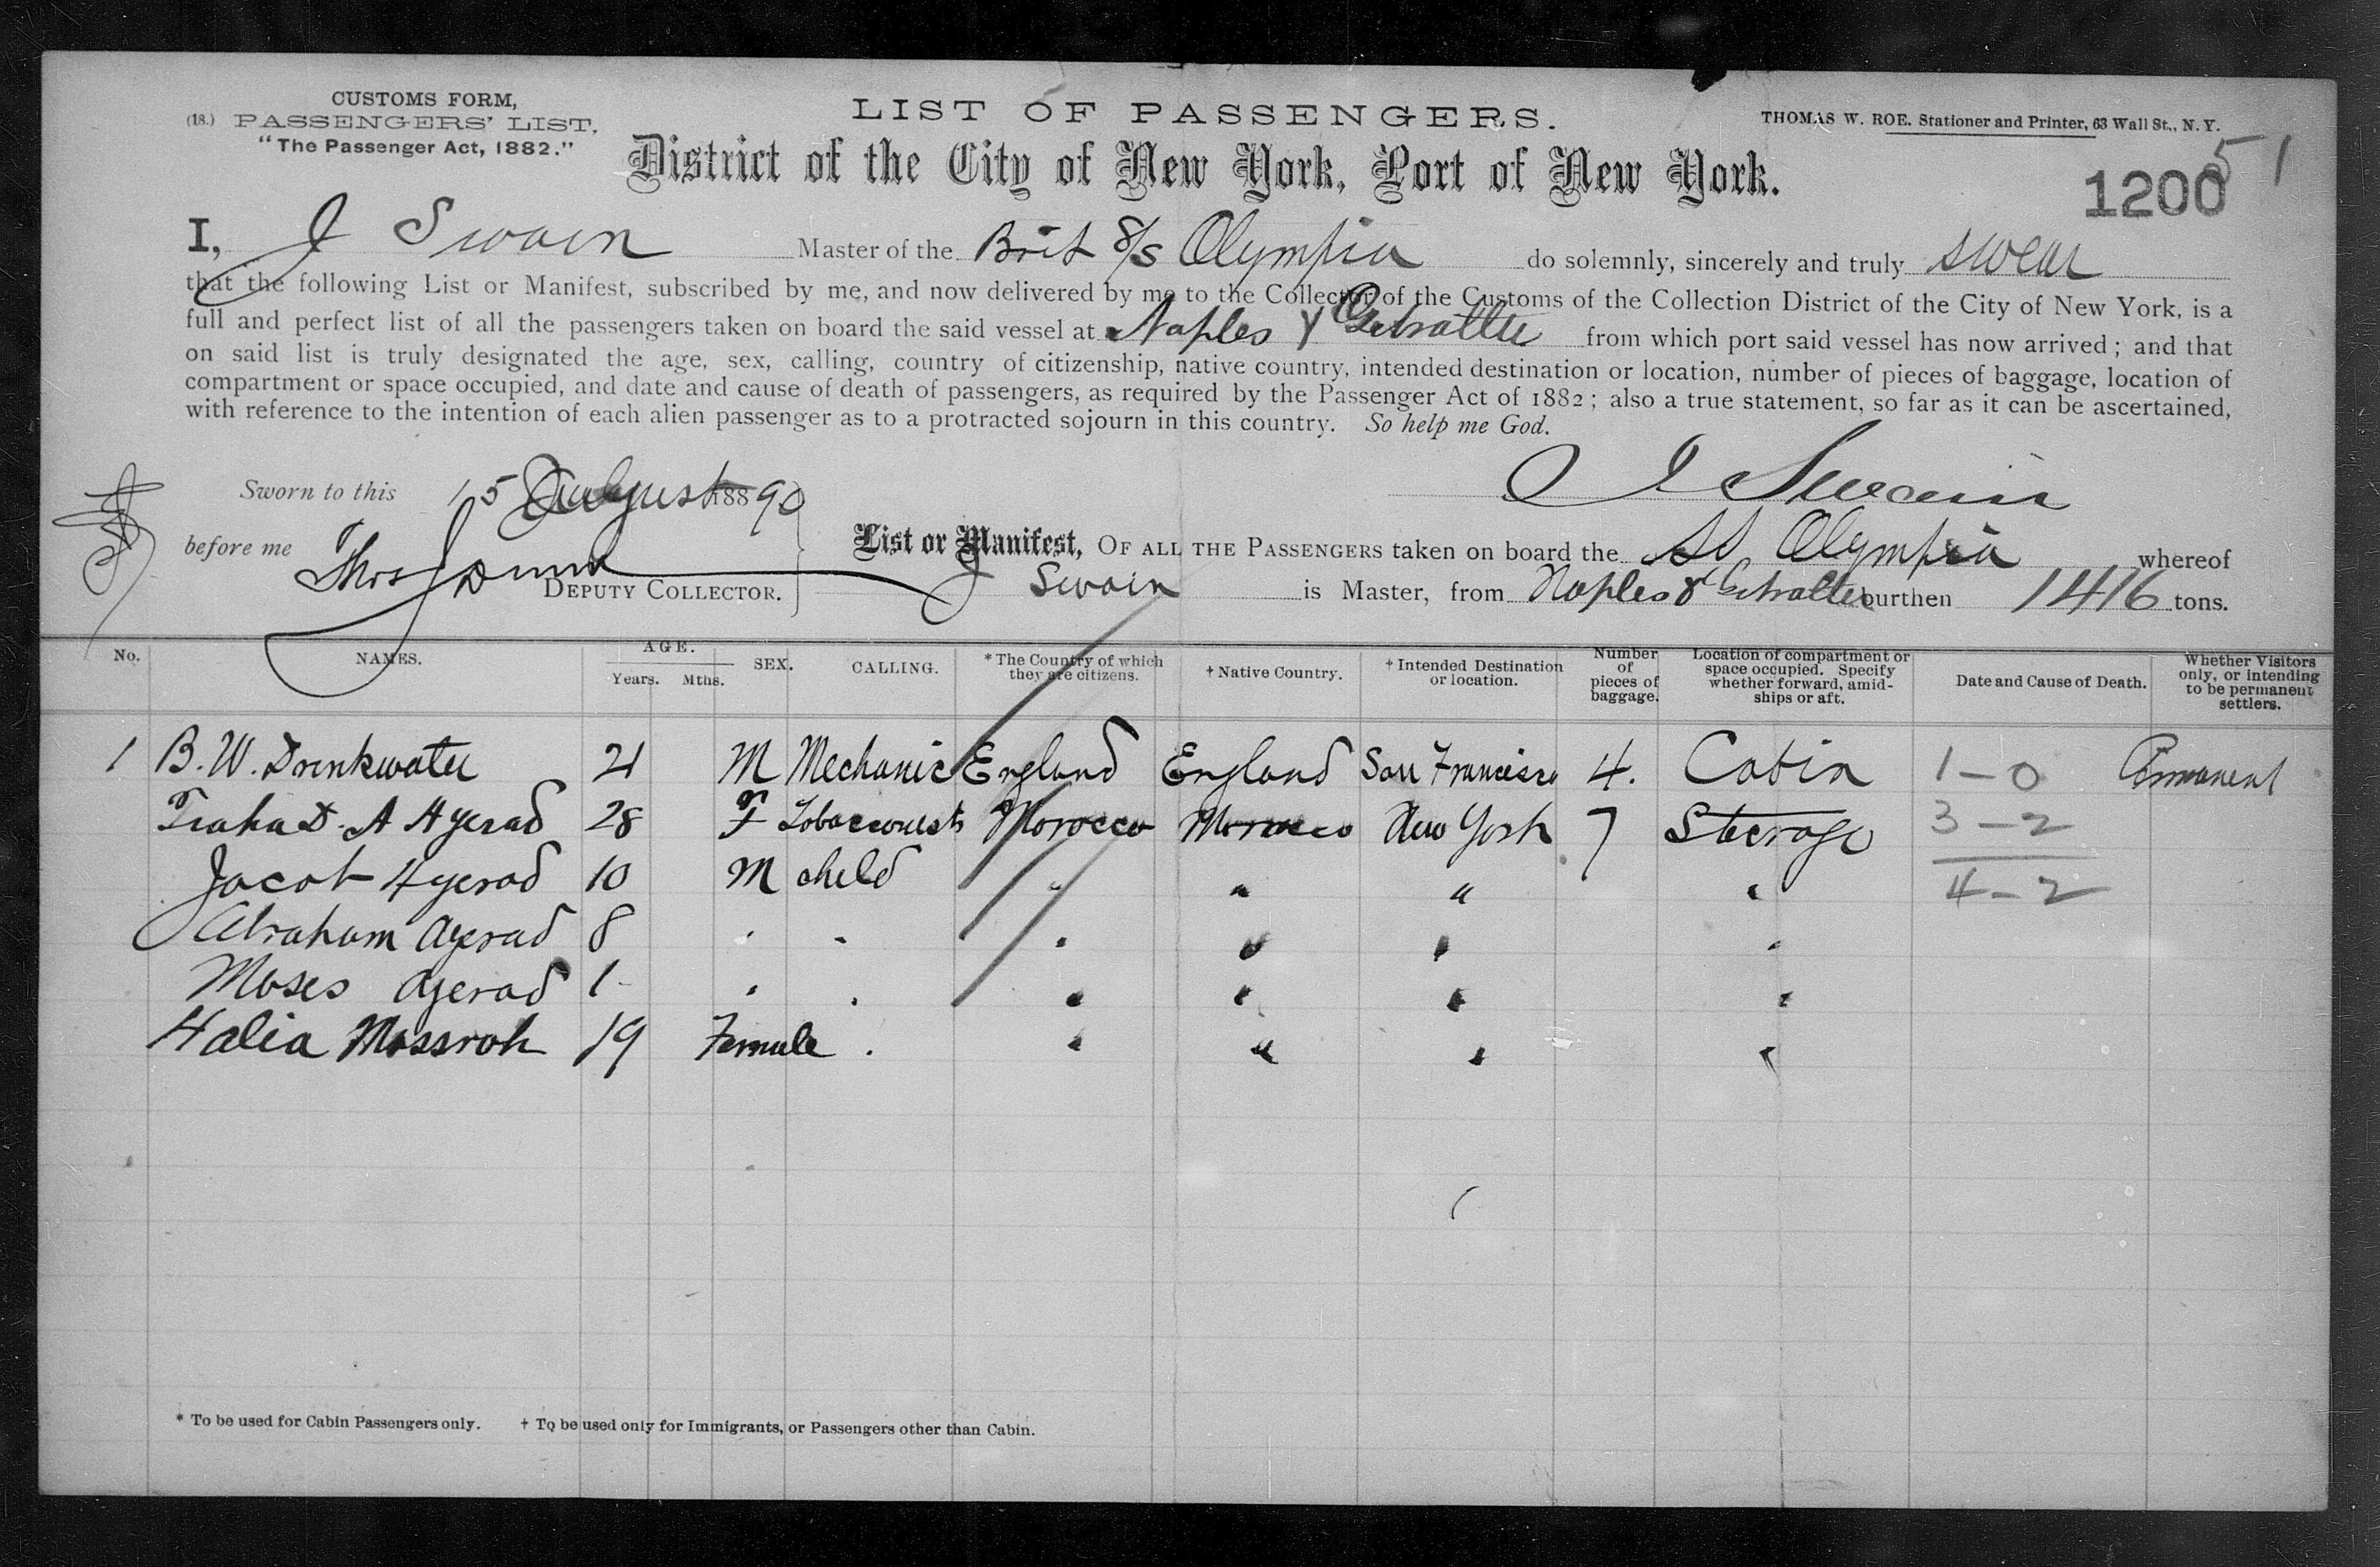 CUSTOMS FORM,
(18.) PASSENGERS' LIST,
"The Passenger Act, 1882."
LIST OF PASSENGERS.
THOMAS W. ROE. Stationer and Printer, 63 Wall St., N. Y.
District of the City of New York, Port of New York.
51
1200
I, J Swain Master of the Brit S/S Olympia do solemnly, sincerely and truly swear
that the following List or Manifest, subscribed by me, and now delivered by me to the Collector of the Customs of the Collection District of the City of New York, is a
full and perfect list of all the passengers taken on board the said vessel at Naples & Gibralter from which port said vessel has now arrived; and that
on said list is truly designated the age, sex, calling, country of citizenship, native country, intended destination or location, number of pieces of baggage, location of
compartment or space occupied, and date and cause of death of passengers, as required by the Passenger Act of 1882; also a true statement, so far as it can be ascertained,
with reference to the intention of each alien passenger as to a protracted sojourn in this country. So help me God.
J Swain
Sworn to this 15 August 188 90
before me Thos Dunn
DEPUTY COLLECTOR.
List or Manifest, OF ALL THE PASSENGERS taken on board the SS Olympia whereof
J Swain is Master, from Naples & Gibralter burthen 1416 tons.
No. NAMES. AGE. Years. Mths. SEX. CALLING. * The Country of which they are citizens. † Native Country. † Intended Destination or location. Number of pieces of baggage. Location of compartment or space occupied. Specify whether forward, amidships or aft. Date and Cause of Death. Whether Visitors only, or intending to be permanent settlers.
1 B. W. Drinkwater 21 M Mechanic England England San Francisco 4. Cabin 1-0 Permanent
A Ayerad 28 F Tobacconists Morocco Morocco New York 7 Steerage 3-2
Jacob Ayerad 10 M child " " " " 4-2
Abraham Ayerad 8 " " " " " "
Moses Ayerad 1 " " " " " "
Halia 19 Female " " " " "
* To be used for Cabin Passengers only. † To be used only for Immigrants, or Passengers other than Cabin.